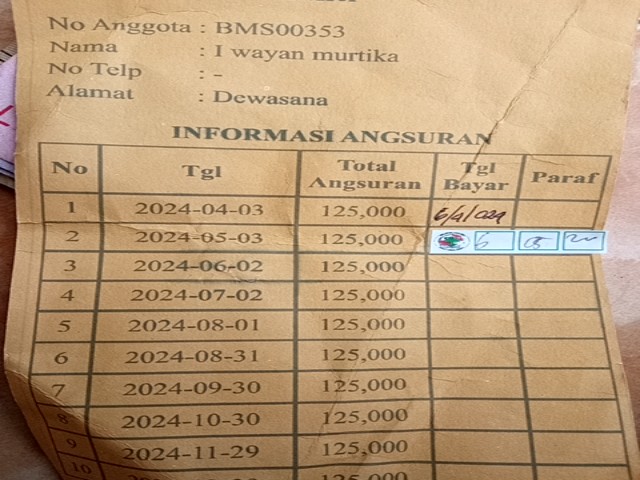 No Anggota : BMS00353
Nama : I wayan murtika
No Telp : -
Alamat : Dewasana
INFORMASI ANGSURAN
No Tgl Total Angsuran Tgl Bayar Paraf
1 2024-04-03 125,000
2 2024-05-03 125,000 6
3 2024-06-02 125,000
4 2024-07-02 125,000
5 2024-08-01 125,000
6 2024-08-31 125,000
7 2024-09-30 125,000
8 2024-10-30 125,000
9 2024-11-29 125,000
10